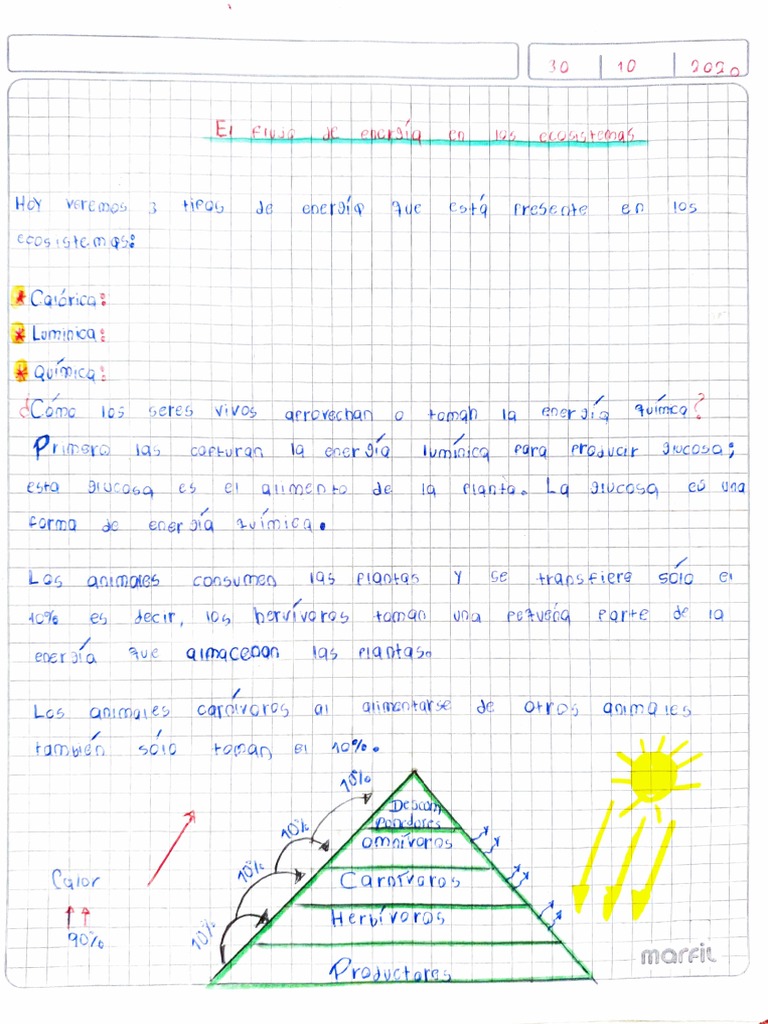 30 | 10 | 2020
El flujo de energía en los ecosistemas
Hoy veremos 3 tipos de energía que está presente en los
ecosistemas:
* Calórica:
* Lumínica:
* Química:
¿Cómo los seres vivos aprovechan o toman la energía química?
Primero las capturan la energía lumínica para producir glucosa;
esta glucosa es el alimento de la planta. La glucosa es una
forma de energía química.
Los animales consumen las plantas y se transfiere sólo el
10% es decir, los hervívoros toman una pequeña parte de la
energía que almacenan las plantas.
Los animales carnívoros al alimentarse de otros animales
también sólo toman el 10%.
10%
Descom
ponedores
10%
Omnívoros
10%
Carnívoros
Calor
90%
Hervívoros
10%
Productores
marfil